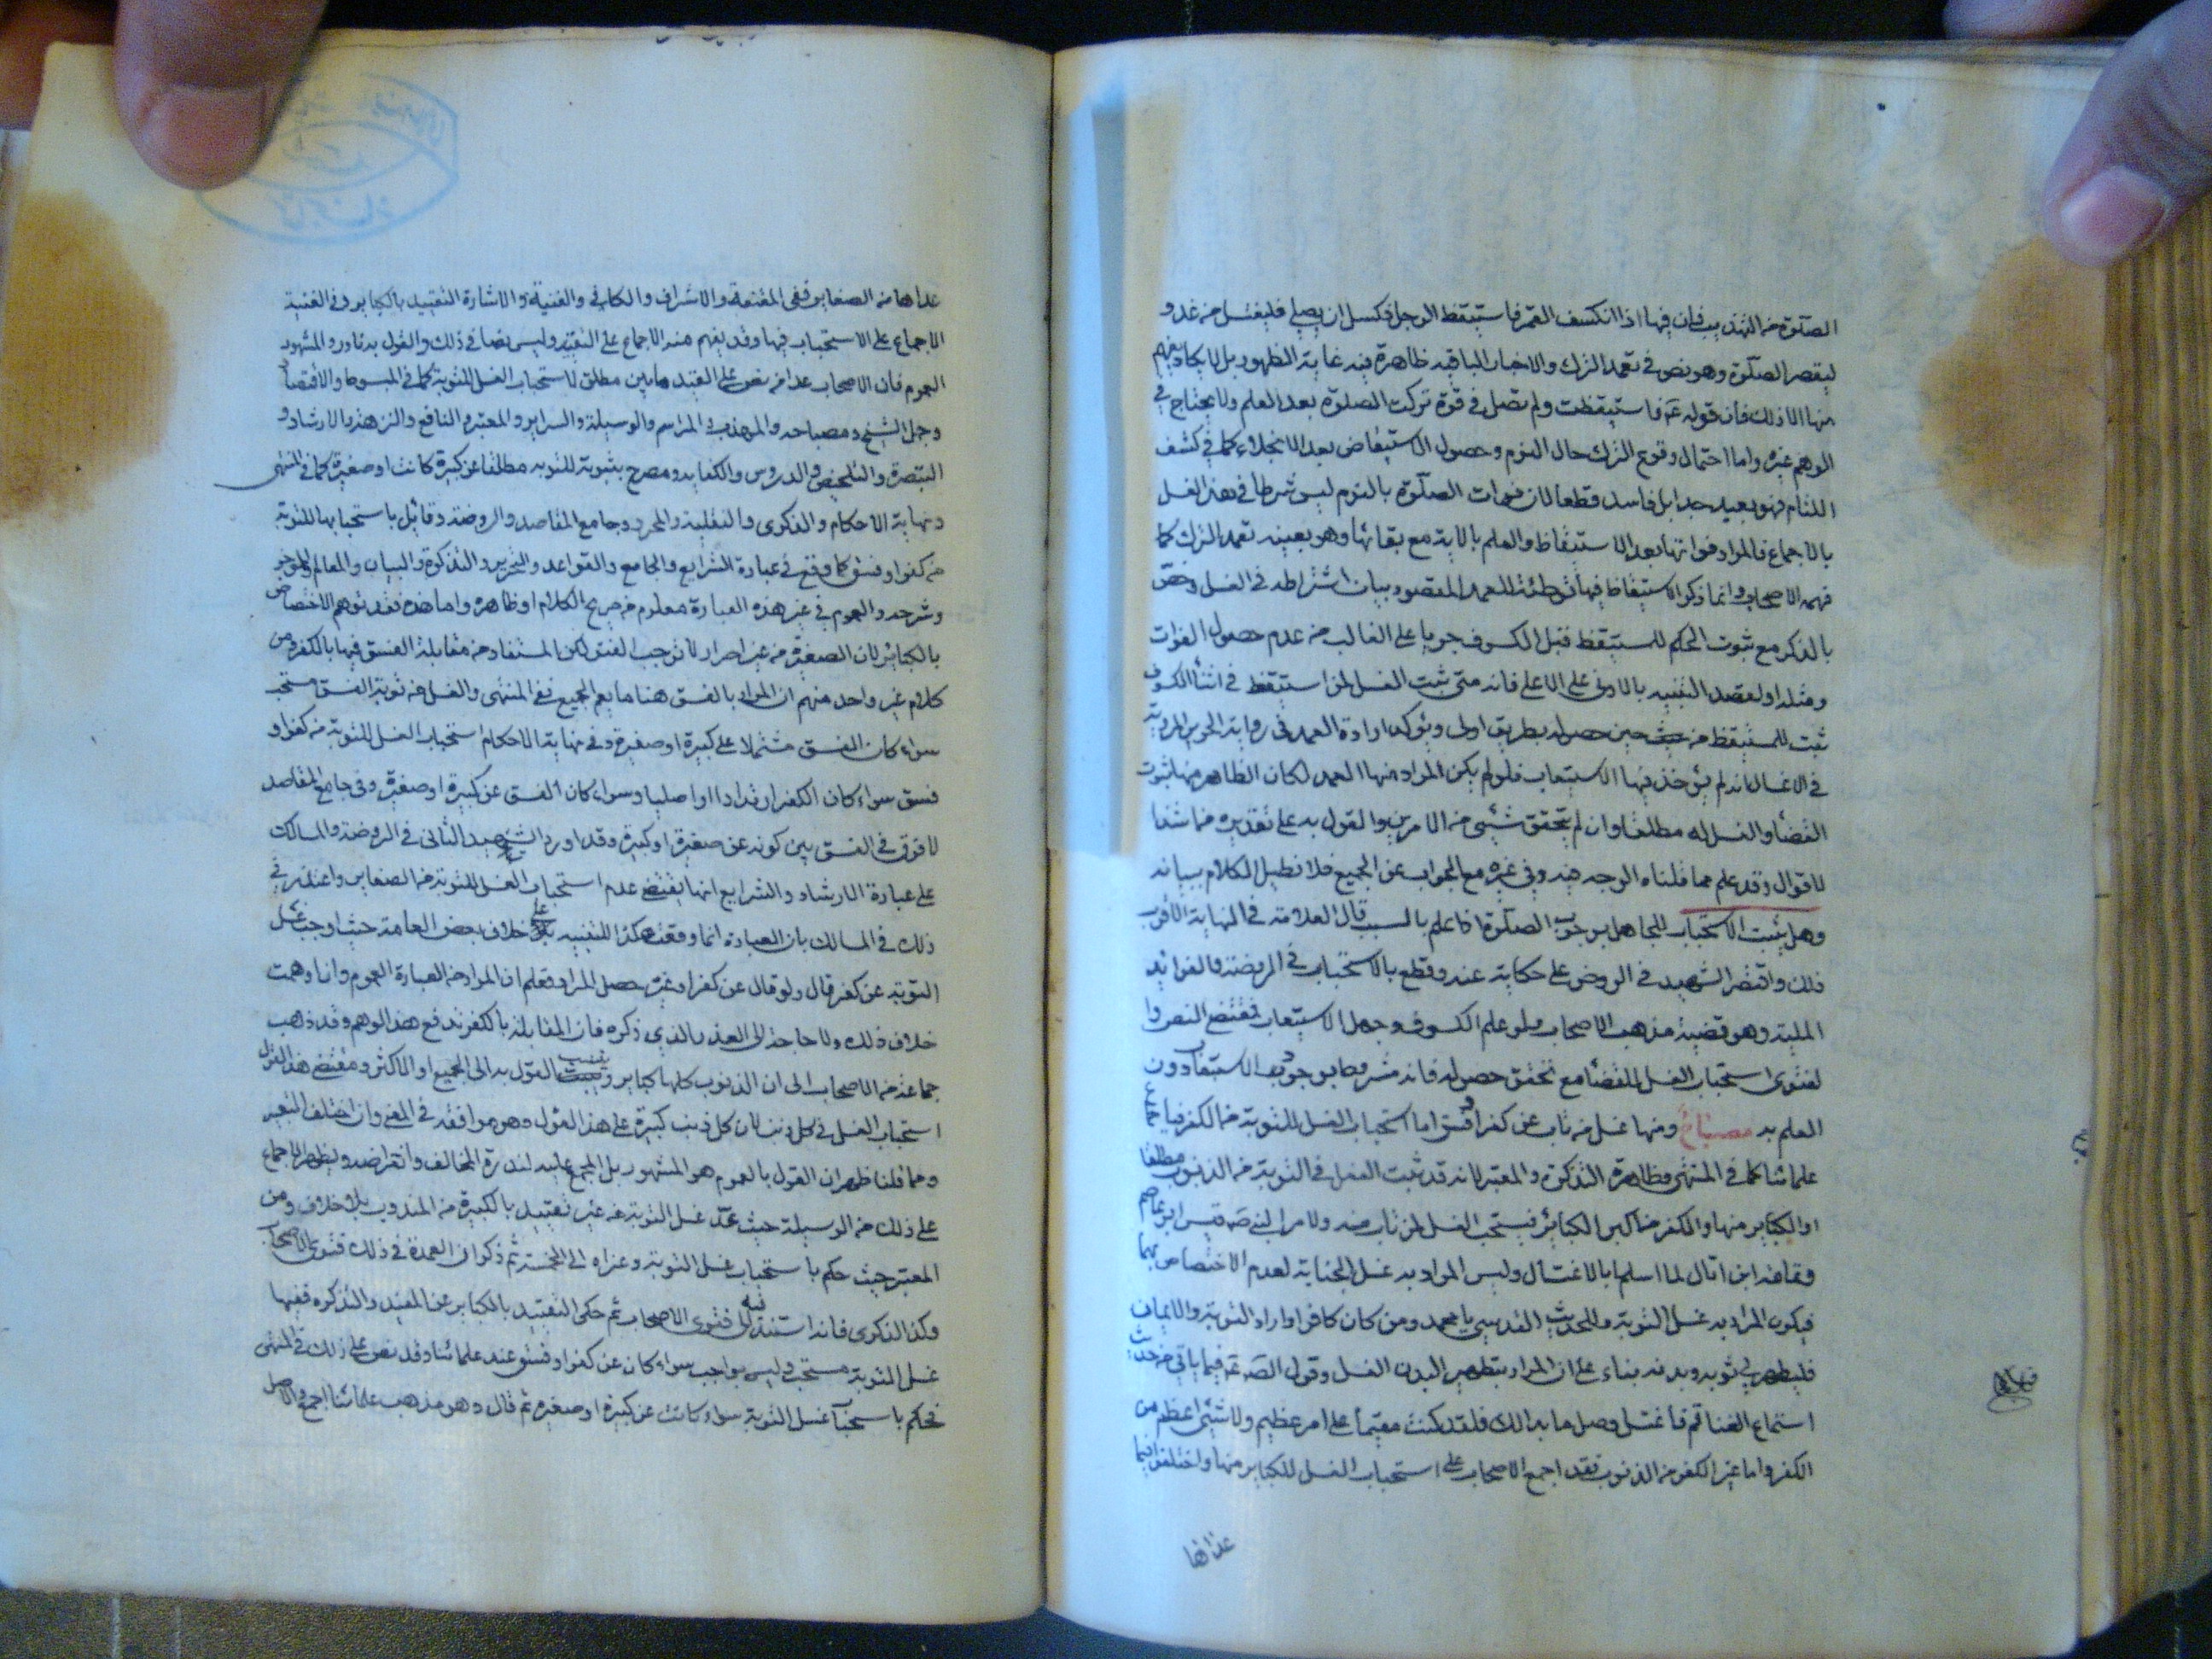 الصلوة من التهذيب فان فيها اذا انكسف القمر فاستيقظ الرجل فكسل ان يصلي فليغتسل من غد و
ليقض الصلوة وهو نص في تعمد الترك والاخبار الباقيه ظاهرة فيه غاية الظهور بل لا يكاد يفهم
منها الا ذلك فان قوله ع فاستيقظت ولم تصل في قوة تركت الصلوة بعد العلم ولا يحتاج في
الوهم غيره واما احتمال وقوع الترك حال النوم وحصول الاستيقاض بعد الانجلاء كما في كشف
اللثام فهو بعيد جدا بل فاسد قطعا لان فوات الصلوة بالنوم ليس شرطا في هذا الغسل
بالاجماع فالمراد فواتها بعد الاستيقاظ والعلم بالاية مع بقائها وهو بعينه تعمد الترك كما
فهمه الاصحاب وانما ذكر الاستيقاظ فيها توطئة للعمد المقصود بيان اشتراطه في الغسل وخص
بالذكر مع ثبوت الحكم للمستيقظ قبل الكسوف جريا على الغالب من عدم حصول الفوات
ومثله او لقصد التنبيه بالادنى على الاعلى فانه متى ثبت الغسل لمن استيقظ في اثناء الكسوف
ثبت للمستيقظ من حين حصوله بطريق اولى ويؤكد ارادة العمد في رواية الحريز المروية
في الاغسال انه لم يؤخذ فيها الاستيعاب فلو لم يكن المراد منها العمد لكان الظاهر منها ثبوت
القضاء والغسل له مطلقا وان لم يتحقق شيئ من الامرين والقول به على تقديره فما شذا
لاقوال وقد علم مما قلناه الوجه فيه وفي غيره مع الجواب عن الجميع فلا نطيل الكلام ببيانه
وهل يثبت الاستحباب للجاهل بوجوب الصلوة اذا علم بالسبب قال العلامة في النهاية الاقرب
ذلك واقتصر الشهيد في الروض على حكايته عنه وقطع بالاستحباب في الروضة والفوائد
المليه وهو قضية مذهب الاصحاب ولو علم الكسوف وجهل الاستيعاب فمقتضى النص وا
لفتوى استحباب الغسل للقضاء مع تحقق حصوله فانه مشروط بوجود الاستيعاب دون
العلم به مصباح ومنها غسل من تاب عن كفر او فسق اما استحباب الغسل للتوبة من الكفر فبا جماع
علمائنا كما في المنتهى وظاهر التذكرة والمعتبر لانه قد ثبت الغسل في التوبة من الذنوب مطلقا
او الكباير منها والكفر من اكبر الكبائر فيستحب الغسل لمن تاب منه ولامر النبي ص قيس ابن عاصم
وثمامة ابن اثال لما اسلما بالاغتسال وليس المراد به غسل الجنابة لعدم الاختصاص بهما
فيكون المراد به غسل التوبة وللحديث القدسي يا محمد ومن كان كافرا واراد التوبة والايمان
فليطهر لي ثوبه وبدنه بناء على ان المراد بتطهير البدن الغسل وقول الص ع فيما ياتي من حديث
استماع الغنا قم فاغتسل وصل ما بدا لك فلقد كنت مقيما على امر عظيم ولا شيئ اعظم من
الكفر واما غير الكفر من الذنوب فقد اجمع الاصحاب على استحباب الغسل للكباير منها واختلفوا فيما
عداها
عداها من الصغاير ففي المقنعة والاشراف والكافي والغنية والاشارة التقييد بالكباير وفي الغنية
الاجماع على الاستحباب فيها وقد يفهم منه الاجماع على التقييد وليس نصا في ذلك والقول به نادر والمشهور
العموم فان الاصحاب عدا من نص على القيد ما بين مطلق لاستحباب الغسل للتوبة كما في المبسوط والاقتصاد
وجمل الشيخ ومصباحه والمهذب والمراسم والوسيلة والسراير والمعتبر والنافع والنزهة والارشاد و
التبصرة والتلخيص والدروس والكفايه ومصرح بثبوته للتوبه مطلقا عن كبيرة كانت او صغيرة كما في المنتهى
ونهاية الاحكام والذكرى والنفلية والمحرر وجامع المقاصد والروضة وقائل باستحبابها للتوبة
من كفر او فسق كما وقع في عبارة الشرايع والجامع والقواعد والتحرير والتذكرة والبيان والمعالم والموجز
وشرحه والعموم في غير هذه العبارة معلوم من صريح الكلام او ظاهره واما هذه فقد توهم الاختصاص
بالكبائر لان الصغيرة من غير اصرار لا توجب الفسق لكن المستفاد من مقابلة الفسق فيها بالكفر ومن
كلام غير واحد منهم ان المراد بالفسق هنا ما يعم الجميع ففي المنتهى والغسل من توبة الفسق مستحب
سواء كان الفسق مشتملا على كبيرة او صغيرة وفي نهاية الاحكام استحباب الغسل للتوبة من كفر او
فسق سواء كان الكفر ارتدادا او اصليا وسواء كان الفسق عن كبيرة او صغيرة وفي جامع المقاصد
لا فرق في الفسق بين كونه عن صغيرة او كبيرة وقد اورد الشهيد الثاني في الروضة والمسالك
على عبارة الارشاد والشرايع انها يقتضي عدم استحباب الغسل للتوبة من الصغاير واعتذر في
ذلك في المسالك بان العبارة انما وقعت هكذا للتنبيه على خلاف بعض العامة حيث اوجب غسل
التوبة عن كفر قال ولو قال عن كفر او غيره حصل المراد فعلم ان المراد من العبارة العموم وان اوهمت
خلاف ذلك ولا حاجة الى العذر الذي ذكره فان المقابلة بالكفر تدفع هذا الوهم وقد ذهب
جماعة من الاصحاب الى ان الذنوب كلها كباير وينسب القول به الى الجميع او الاكثر ومقتضى هذا القول
استحباب الغسل في كل ذنب لان كل ذنب كبيرة على هذا القول وهو موافقة في المعنى وان اختلف التعبير
ومما قلنا ظهر ان القول بالعموم هو المشهور بل المجمع عليه لندرة المخالف وانقراضه ويظهر الاجماع
على ذلك من الوسيلة حيث عد غسل التوبة من غير تقييد بالكبيرة من المندوب بلا خلاف ومن
المعتبر حيث حكم باستحباب غسل التوبة وعزاه الى الخمسة ثم ذكر ان العمدة في ذلك فتوى الاصحاب
وكذا الذكرى فانه استند فيه الى فتوى الاصحاب ثم حكى التقييد بالكباير عن المفيد والتذكره ففيها
غسل التوبة مستحب وليس بواجب سواء كان عن كفر او فسق عند علمائنا وقد نص على ذلك في المنتهى
فحكم باستحباب غسل التوبة سواء كانت عن كبيرة او صغيره ثم قال وهو مذهب علمائنا اجمع والاصل